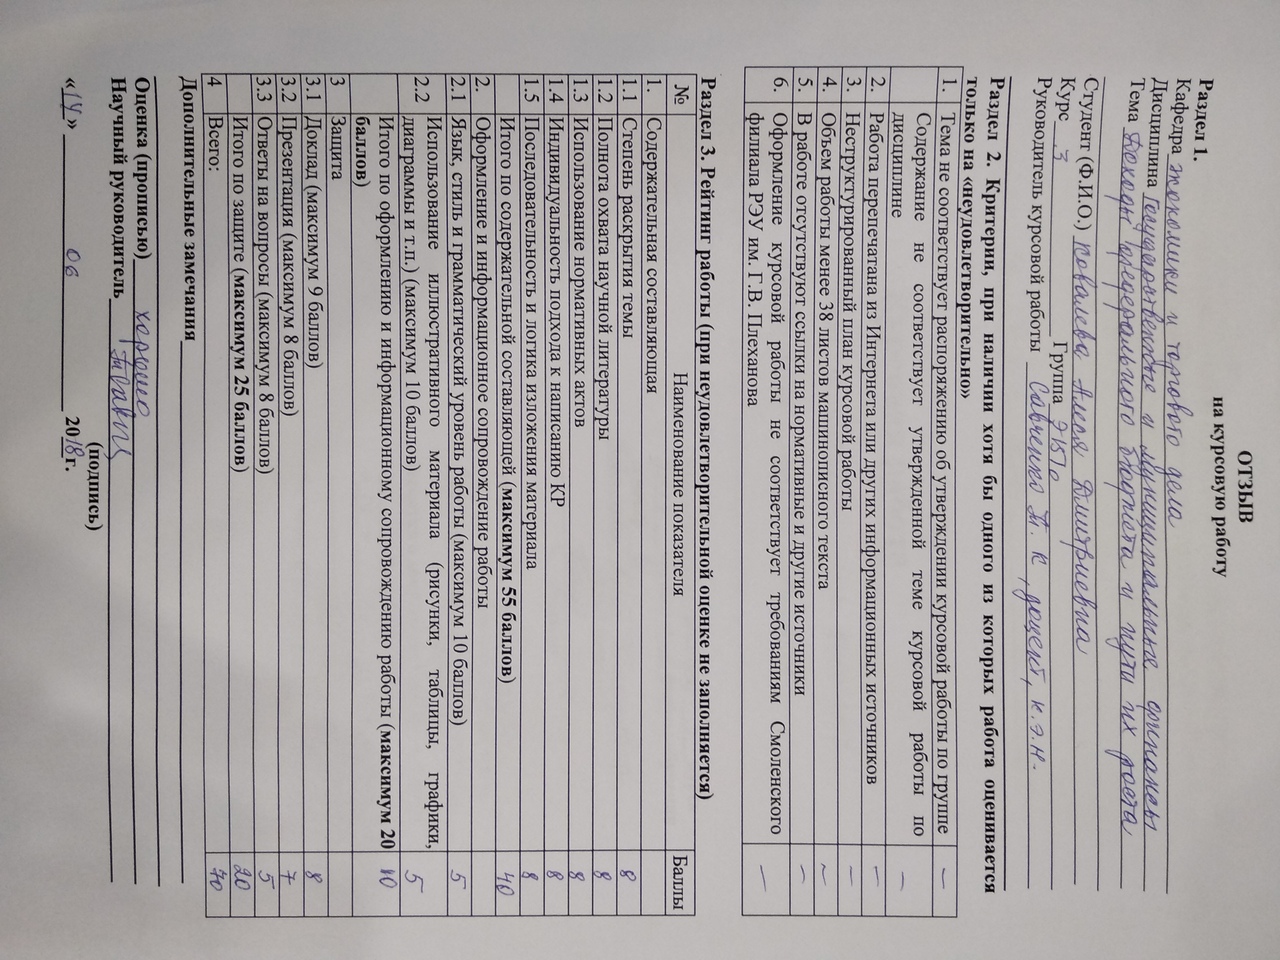 ОТЗЫВ
на курсовую работу
Раздел 1.
Кафедра экономики и торгового дела
Дисциплина Государственные и муниципальные финансы
Тема Доходы федерального бюджета и пути их роста
Студент (Ф.И.О.) Ковалева Алеся Дмитриевна
Курс 3 Группа
Руководитель курсовой работы Савченко Т. К., доцент, к.э.н.
Раздел 2. Критерии, при наличии хотя бы одного из которых работа оценивается
только на «неудовлетворительно»
1. Тема не соответствует распоряжению об утверждении курсовой работы по группе —
Содержание не соответствует утвержденной теме курсовой работы по
дисциплине —
2. Работа перепечатана из Интернета или других информационных источников —
3. Неструктурированный план курсовой работы —
4. Объем работы менее 38 листов машинописного текста ~
5. В работе отсутствуют ссылки на нормативные и другие источники —
6. Оформление курсовой работы не соответствует требованиям Смоленского
филиала РЭУ им. Г.В. Плеханова —
Раздел 3. Рейтинг работы (при неудовлетворительной оценке не заполняется)
№ Наименование показателя Баллы
1. Содержательная составляющая
1.1 Степень раскрытия темы 8
1.2 Полнота охвата научной литературы 8
1.3 Использование нормативных актов 8
1.4 Индивидуальность подхода к написанию КР 8
1.5 Последовательность и логика изложения материала 8
Итого по содержательной составляющей (максимум 55 баллов) 40
2. Оформление и информационное сопровождение работы
2.1 Язык, стиль и грамматический уровень работы (максимум 10 баллов) 5
2.2 Использование иллюстративного материала (рисунки, таблицы, графики,
диаграммы и т.п.) (максимум 10 баллов) 5
Итого по оформлению и информационному сопровождению работы (максимум 20
баллов) 10
3 Защита
3.1 Доклад (максимум 9 баллов) 8
3.2 Презентация (максимум 8 баллов) 7
3.3 Ответы на вопросы (максимум 8 баллов) 5
Итого по защите (максимум 25 баллов) 20
4 Всего: 70
Дополнительные замечания
Оценка (прописью) хорошо
Научный руководитель
(подпись)
«14» 06 2018г.